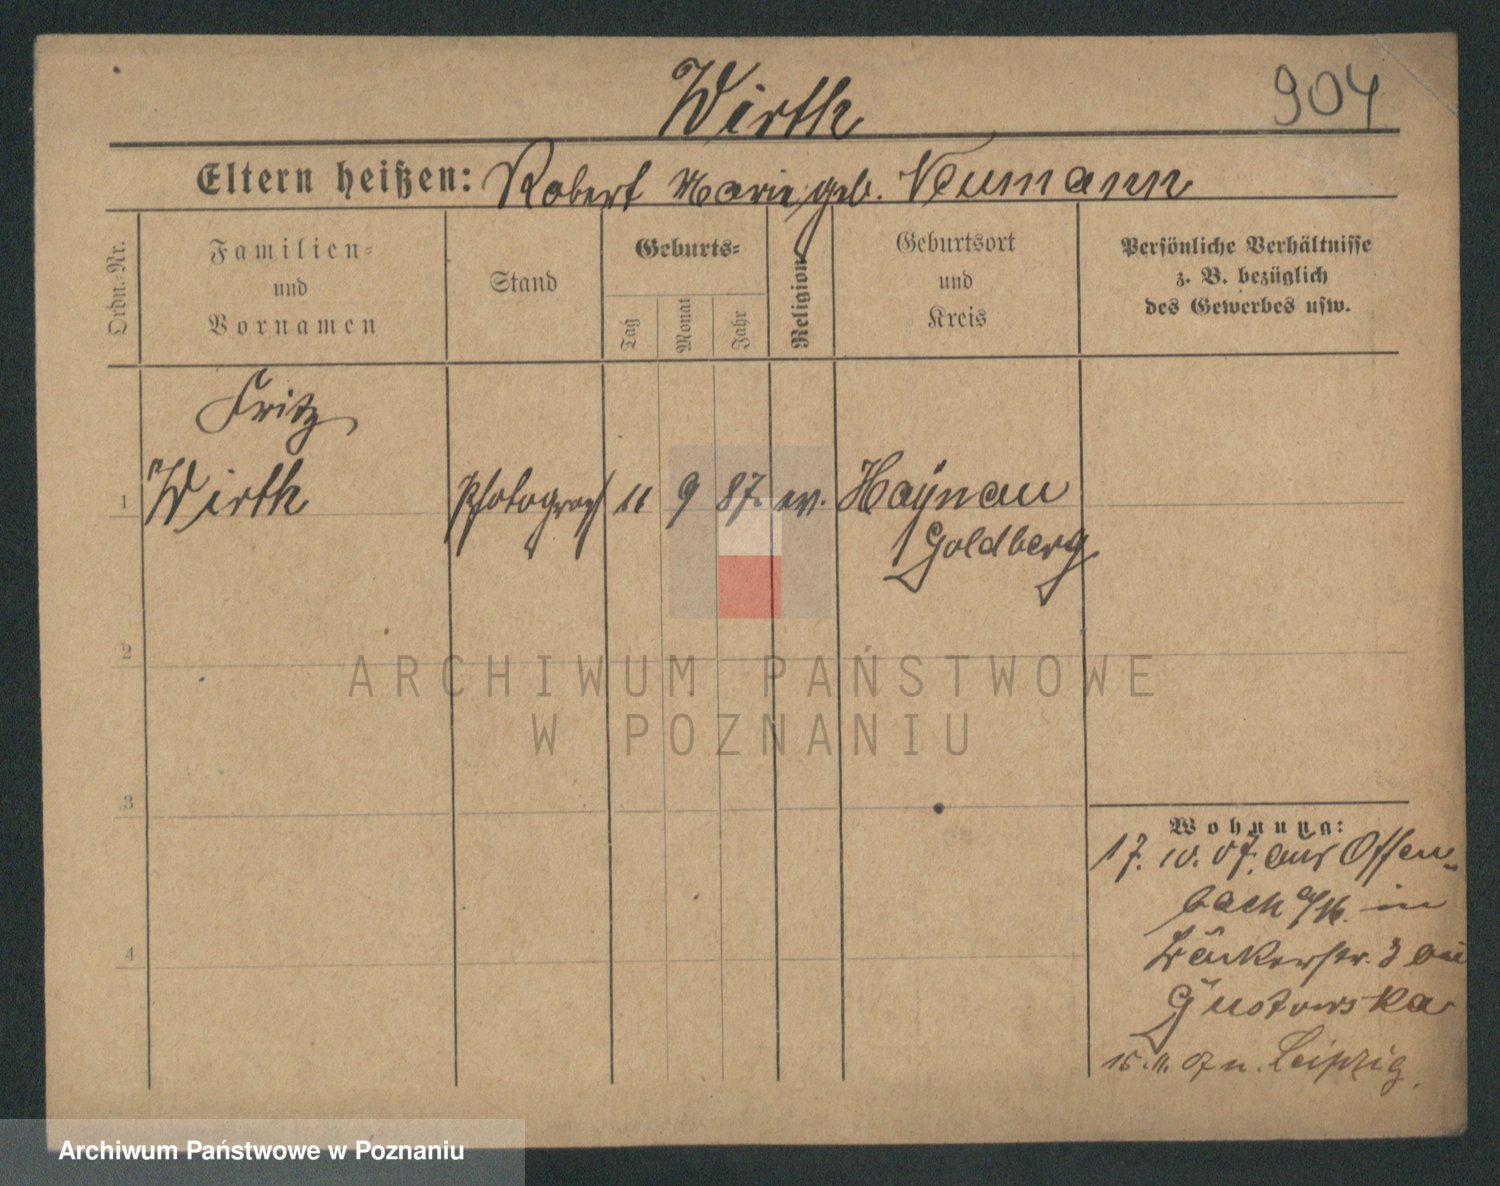 Wirth
904
Eltern heißen: Robert Marie geb. Neumann
Ordn.-Nr.
Familien-
und
Vornamen
Stand
Geburts-
Tag
Monat
Jahr
Religion
Geburtsort
und
Kreis
Persönliche Verhältnisse
z. B. bezüglich
des Gewerbes usw.
Fritz
1 Wirth Photograph 11 9 87. ev. Haynau
Goldberg
2
3
4
Wohnung:
17. 10. 07. aus Offen-
bach a/M. in
3 bei
15. 11. 07 n. Leipzig.
ARCHIWUM PAŃSTWOWE
W POZNANIU
Archiwum Państwowe w Poznaniu